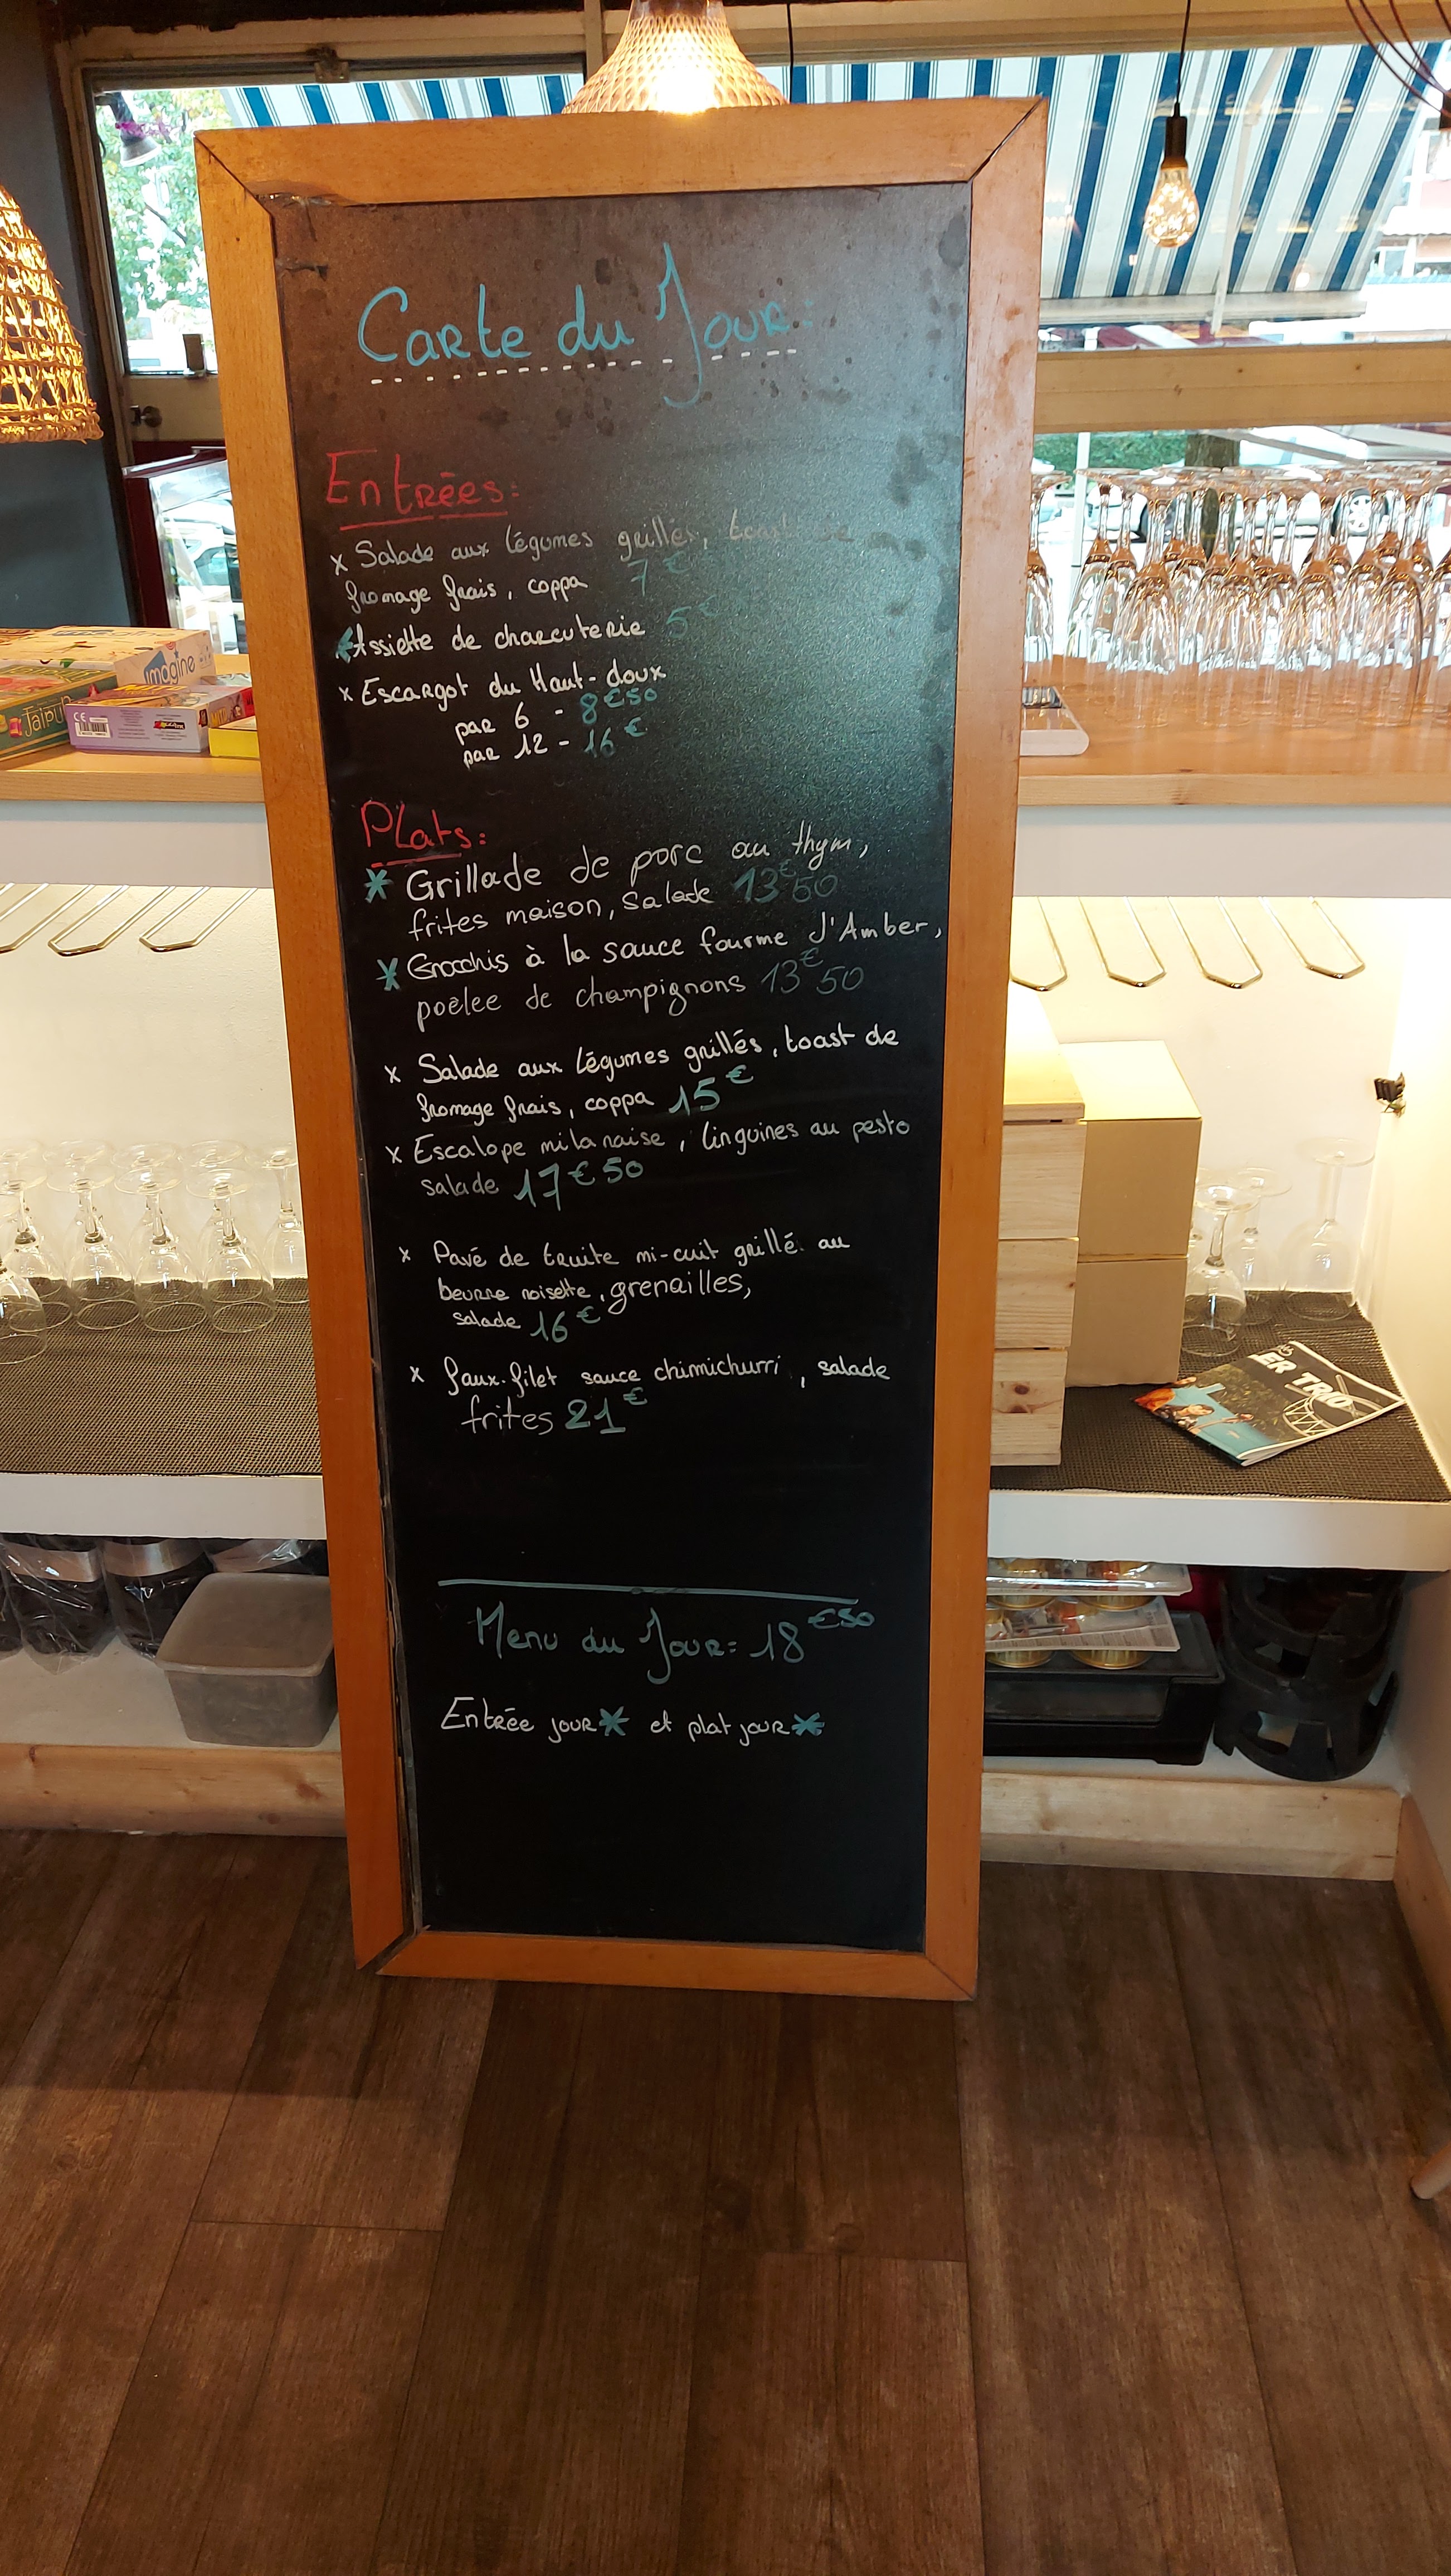 Carte du Jour:
Entrées:
x Salade aux légumes grillés, toast de
fromage frais, coppa 7€
*Assiette de charcuterie 5€
x Escargot du Haut-doux
par 6 - 8€50
par 12 - 16€
Plats:
* Grillade de porc au thym,
frites maison, salade 13€50
* Gnocchis à la sauce fourme d'Amber,
poêlee de champignons 13€50
x Salade aux légumes grillés, toast de
fromage frais, coppa 15€
x Escalope milanaise, linguines au pesto
salade 17€50
x Pavé de truite mi-cuit grillé au
beurre noisette, grenailles,
salade 16€
x faux-filet sauce chimichurri, salade
frites 21€
Menu du Jour: 18€50
Entrée jour* et plat jour*
imagine
Jaipur
ER TRIO